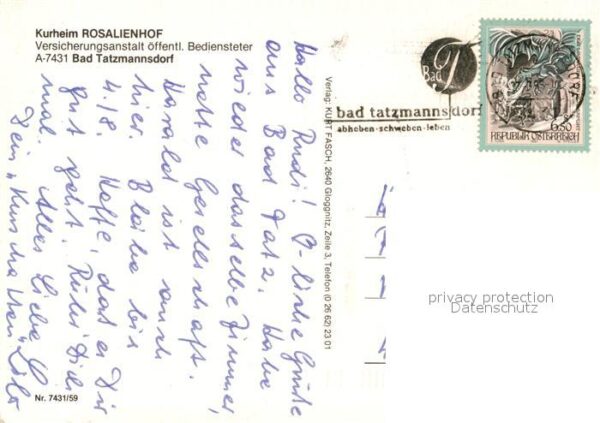 Kurheim ROSALIENHOF
Versicherungsanstalt öffentl. Bediensteter
A-7431 Bad Tatzmannsdorf
Hallo Rudi! Grüße
aus Bad Tatz. Habe
wieder dasselbe Zimmer,
nette Gesellschaft.
Harald ist auch
hier. Bleibe bis
4/8. Hoffe, daß es Dir
gut geht.
mal. Alles Liebe
Dein
Nr. 7431/59
Verlag: KURT FASCH, 2640 Gloggnitz, Zeile 3, Telefon (0 26 62) 23 01
Bad T
bad tatzmannsdorf
abheben-schweben-leben
6.50
REPUBLIK ÖSTERREICH
privacy protection
Datenschutz